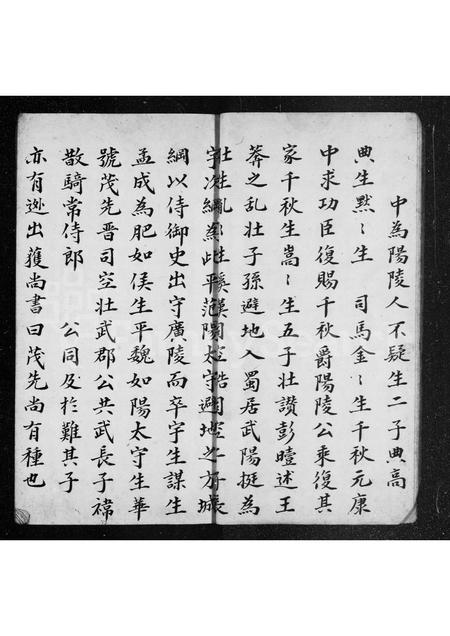 中為陽陵人不疑生二子典高
典生默〻生 司馬金〻生千秋元康
中求功臣復賜千秋爵陽陵公乘復其
家千秋生嵩〻生五子壯讚彭曀述王
莽之乱壯子孫避地入蜀居武陽挺為
綱以侍御史出守廣陵而卒宇生謀生
孟成為肥如侯生平魏如陽太守生華
號茂先晋司空壯武郡公共武長子禕
散騎常侍郎 公同及於難其子
亦有逊出獲尚書曰茂先尚有種也